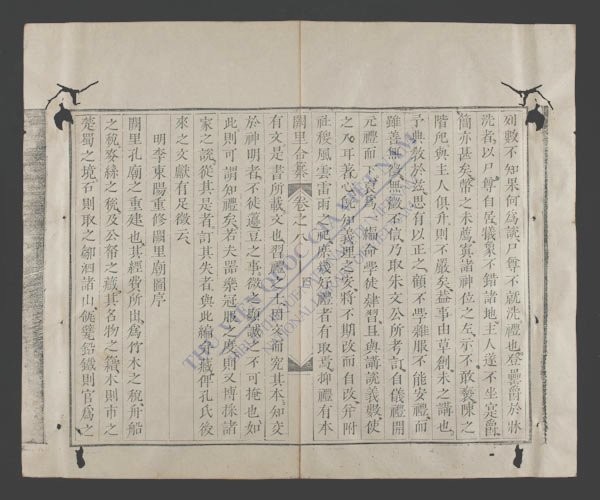 列數不知果何爲哉尸尊不就洗禮也登爵於
洗者以尸尊自居犧象不錯諸地主人遂不坐宴爵
簡亦甚矣幣之未薦實諸神位之左示不敢褻陳之
階𠃔與主人俱升則不嚴矣益事由草創未之講也
予典教於滋思有以正之顧不學雜服不能安禮而
雖善無徵無徵不信乃取朱文公所考訂自儀禮開
元禮而貫爲編命學徒肄習且與講説義數使
之尺耳蓍心知義理之安將不期改而自改并附
社稷風雲雷雨祀葉或好禮者有取焉抑禮有本
闕里合纂 卷之八
有文是書所載文也習禮之士因文而究其本知交
於神明者不徒籩豆之事微之顯誠之不可掩也如
此則可謂知禮矣若夫器樂冠服之度則又博採諸
家之說從其是者訂其失者與此編藏俾孔氏後
來之文獻有足徵云
明李東陽重修闕里廟圖序
闕里孔廟之重建也其經費所出爲竹木之稅舟船
之稅麥絲之稅及公帑之藏其名物之積木則市之
楚蜀之境石則取之鄒泗諸山甓鉛鐵則官爲之
THƯ VIỆN QUỐC GIA VIỆT NAM
NATIONAL LIBRARY OF VIETNAM